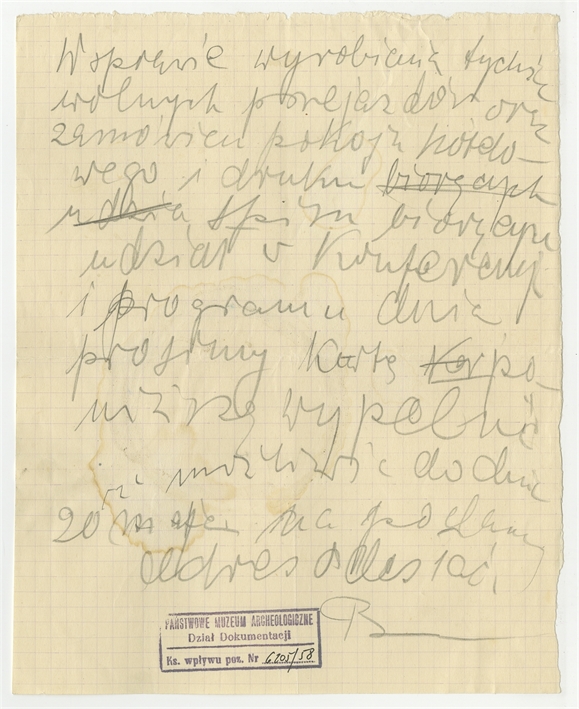 W sprawie wyrobienia tychże
wolnych przejazdów oraz
zamówień pokoju hotelo-
wego i druku biorących
udzia spisu biorących
udział w Konferencji
i programu dnia
prosimy Kartę po-
niższą wypełnić
i możliwie do dnia
20 maja na podany
adres odesłać.
PAŃSTWOWE MUZEUM ARCHEOLOGICZNE
Dział Dokumentacji
Ks. wpływu poz. Nr 6205/58